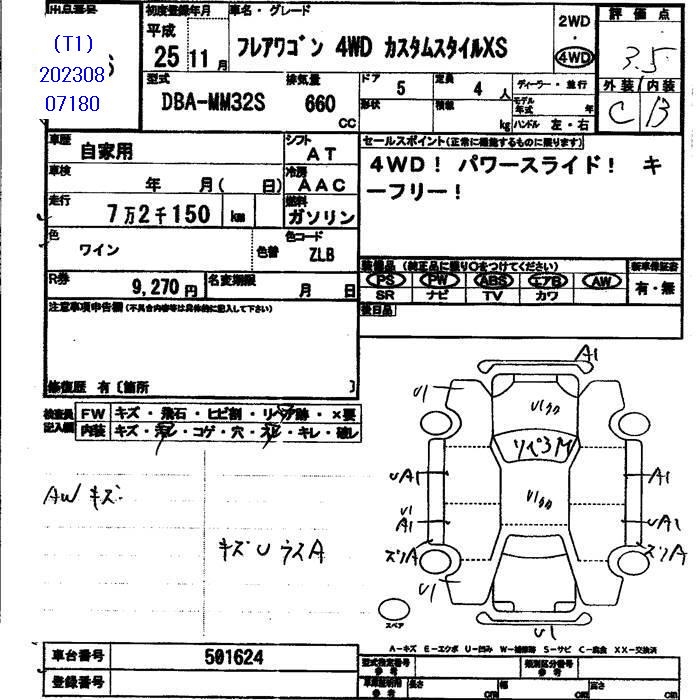 出品番号
初度登録年月
車名・グレード
評価点
(T1)
202308
07180
平成
25
11
月
フレアワゴン 4WD カスタムスタイルXS
2WD
・
4WD
3.5
外装
内装
C
B
型式
DBA-MM32S
排気量
660
CC
ドア
5
定員
4
人
形状
積載
kg
ディーラー・並行
モデル年式
年
ハンドル 左・右
車歴
自家用
シフト
AT
車検
年 月( 日)
冷房
AAC
走行
7万2千150
km
燃料
ガソリン
色
ワイン
色替
色コード
ZLB
R券
9,270円
名変期限
月 日
セールスポイント(正常に機能するものに限ります)
4WD! パワースライド! キ
ーフリー!
装備品 (純正品に限り○をつけてください)
新車保証書
PS PW ABS エアB AW
有・無
SR ナビ TV カワ
後日品
注意事項申告欄(不具合内容等は具体的に記入して下さい)
修復歴 有〔箇所 〕
検査員
記入欄
FW キズ・飛石・ヒビ割・リペア跡・×要
内装 キズ・汚レ・コゲ・穴・スレ・キレ・破レ
AW キズ
キズU ラスA
A1
U1
U1クカ
リペ3M
UA1
A1
U1クカ
U1
A1
UA1
ズリA
ズリA
U1
U1
スペア
A-キズ E-エクボ U-凹み W-補修跡 S-サビ C-腐食 XX-交換済
車台番号
501624
登録番号
型式指定番号
参考
類別区分番号
参考
車庫証明用
参考
長さ
cm
幅
cm
高さ
cm